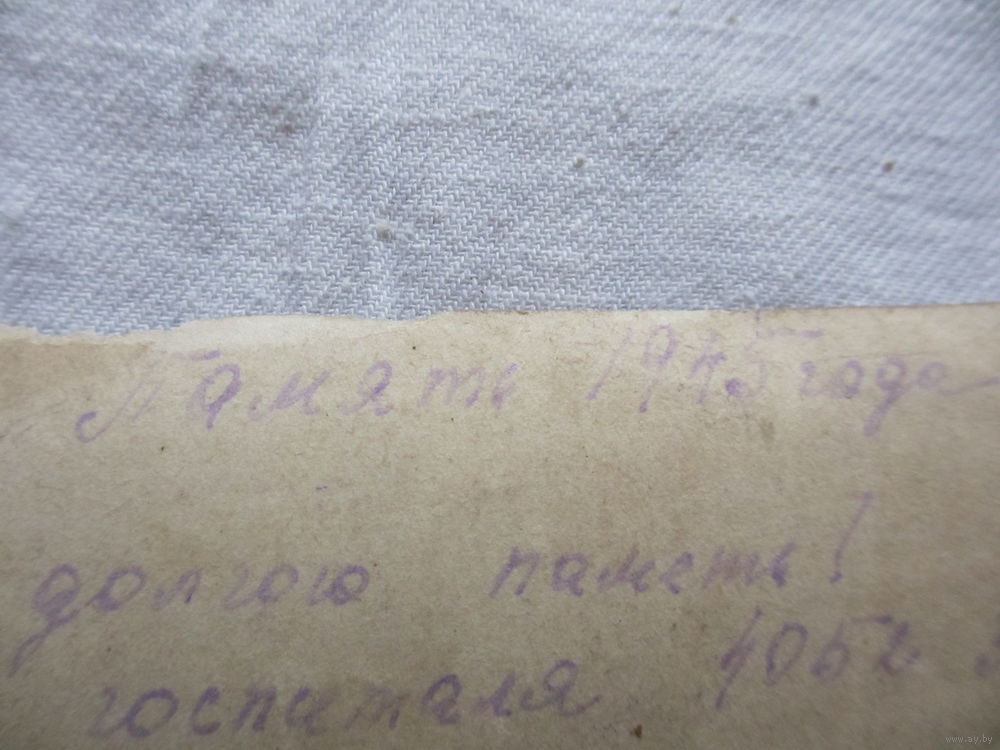 Память 1945 года
долгою паметь!
госпиталя 4052
www.ay.by